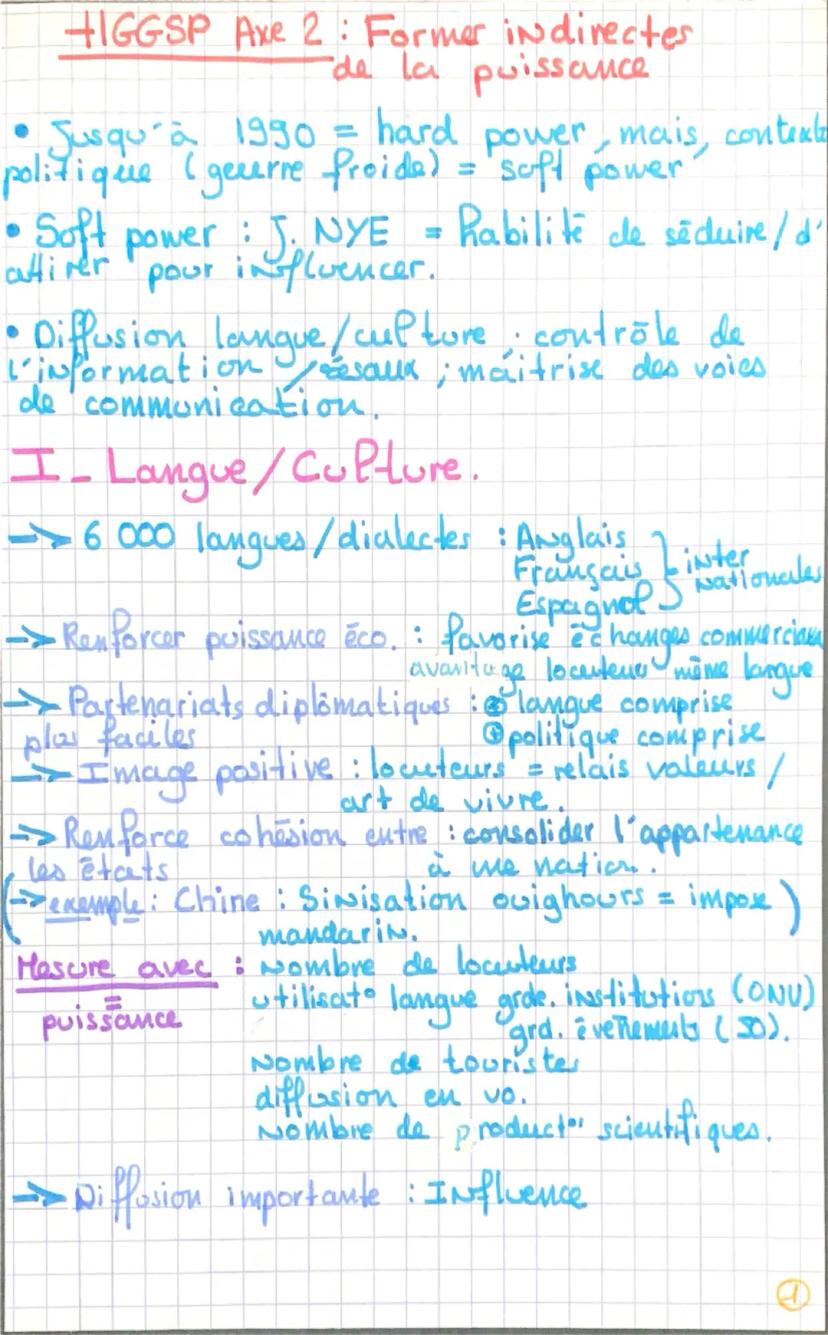 HGGSP Axe 2 : Former indirectes
de la puissance
• Jusqu'à 1990 = hard power, mais, contexte
politique (geurre froide) = soft power
• Soft power : J. NYE = habilité de séduire / d'
attirer pour influencer.
• Diffusion langue/culture ; contrôle de
l'information / résaux ; maitrise des voies
de communication.
I - Langue/Culture.
→ 6 000 langues/dialectes : Anglais
Français
Espagnol } inter
nationales
→ Renforcer puissance éco. : favorise échanges commerciaux
avantage locuteur même langue
→ Partenariats diplômatiques : langue comprise
plus faciles politique comprise
→ Image positive : locuteurs = relais valeurs /
art de vivre.
→ Renforce cohésion entre : consolider l'appartenance
les états à une nation.
(→ exemple : Chine : Sinisation ouighours = impose )
mandarin.
Mesure avec : Nombre de locuteurs
= utilisat° langue grde. institutions (ONU)
puissance grd. évênements (JO).
Nombre de touristes
diffusion en vo.
Nombre de product° scientifiques.
→ Diffusion importante : Influence
1